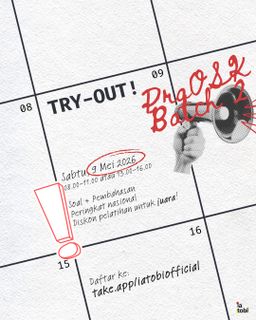 09
08
TRY-OUT!
PraOSK
Batch 2
Sabtu, 9 Mei 2026
08.00-11.00 atau 13.00-16.00
Soal + Pembahasan
Peringkat nasional
Diskon pelatihan untuk juara!
16
15
Daftar ke:
take.app/iatobiofficial
ia
tobi